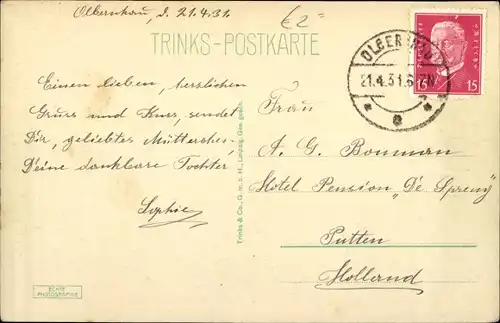 Olbernhau, d. 21.4.31.
€2=
TRINKS-POSTKARTE
Einen lieben, herzlichen
Gruss und Kuss, sendet
Dir, geliebtes Mütterchen,
Deine dankbare Tochter
Sophie
ECHTE
PHOTOGRAPHIE
Trinks & Co., G. m. b. H., Leipzig. Ges. gesch.
OLBERNHAU
21.4.31.6-7N
15 15
Frau
A. G. Bouman
Hotel Pension „De Spreng"
Putten
Holland